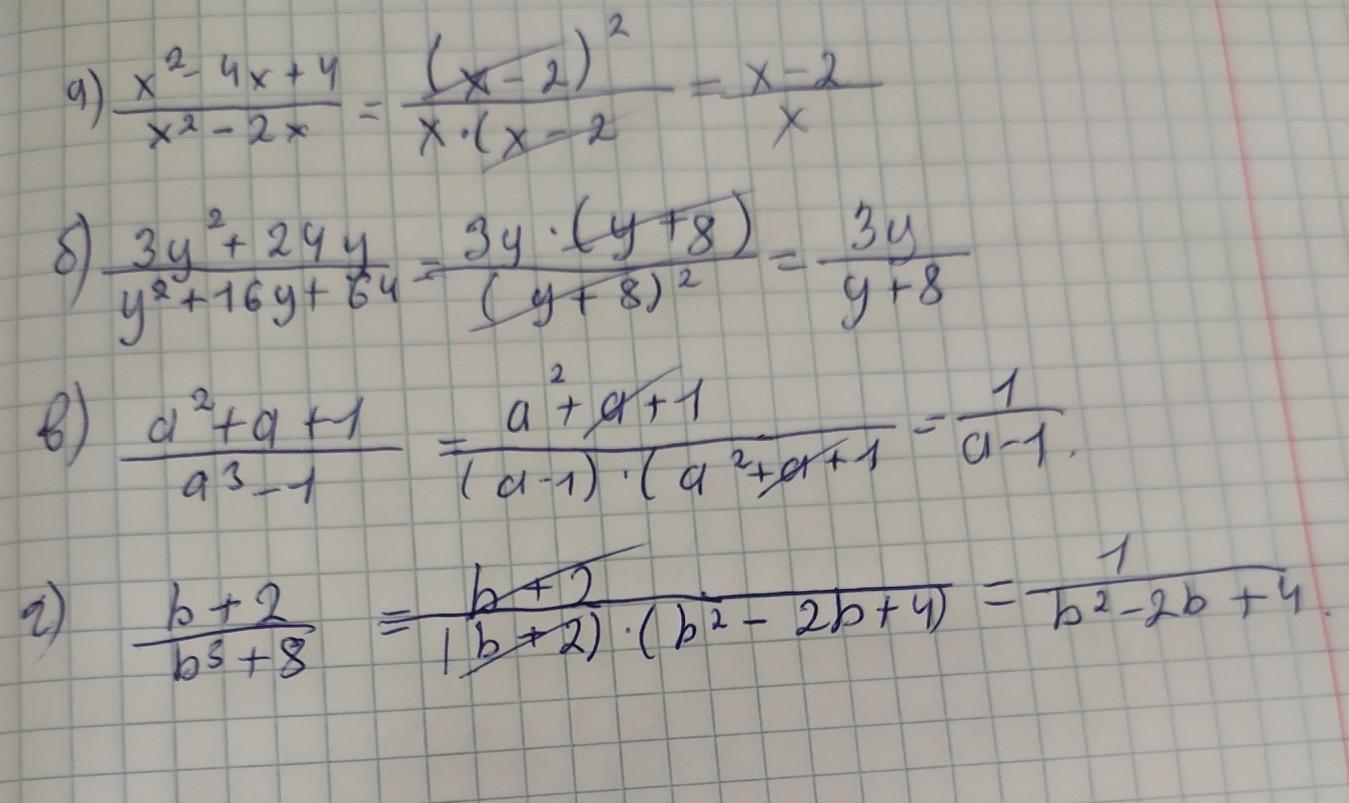 а) (x² - 4x + 4)/(x² - 2x) = (x - 2)²/(x · (x - 2) = (x - 2)/x
б) (3y² + 24y)/(y² + 16y + 64) = (3y · (y + 8))/(y + 8)² = 3y/(y + 8)
в) (a² + a + 1)/(a³ - 1) = (a² + a + 1)/((a - 1) · (a² + a + 1) = 1/(a - 1).
г) (b + 2)/(b³ + 8) = (b + 2)/((b + 2) · (b² - 2b + 4)) = 1/(b² - 2b + 4).